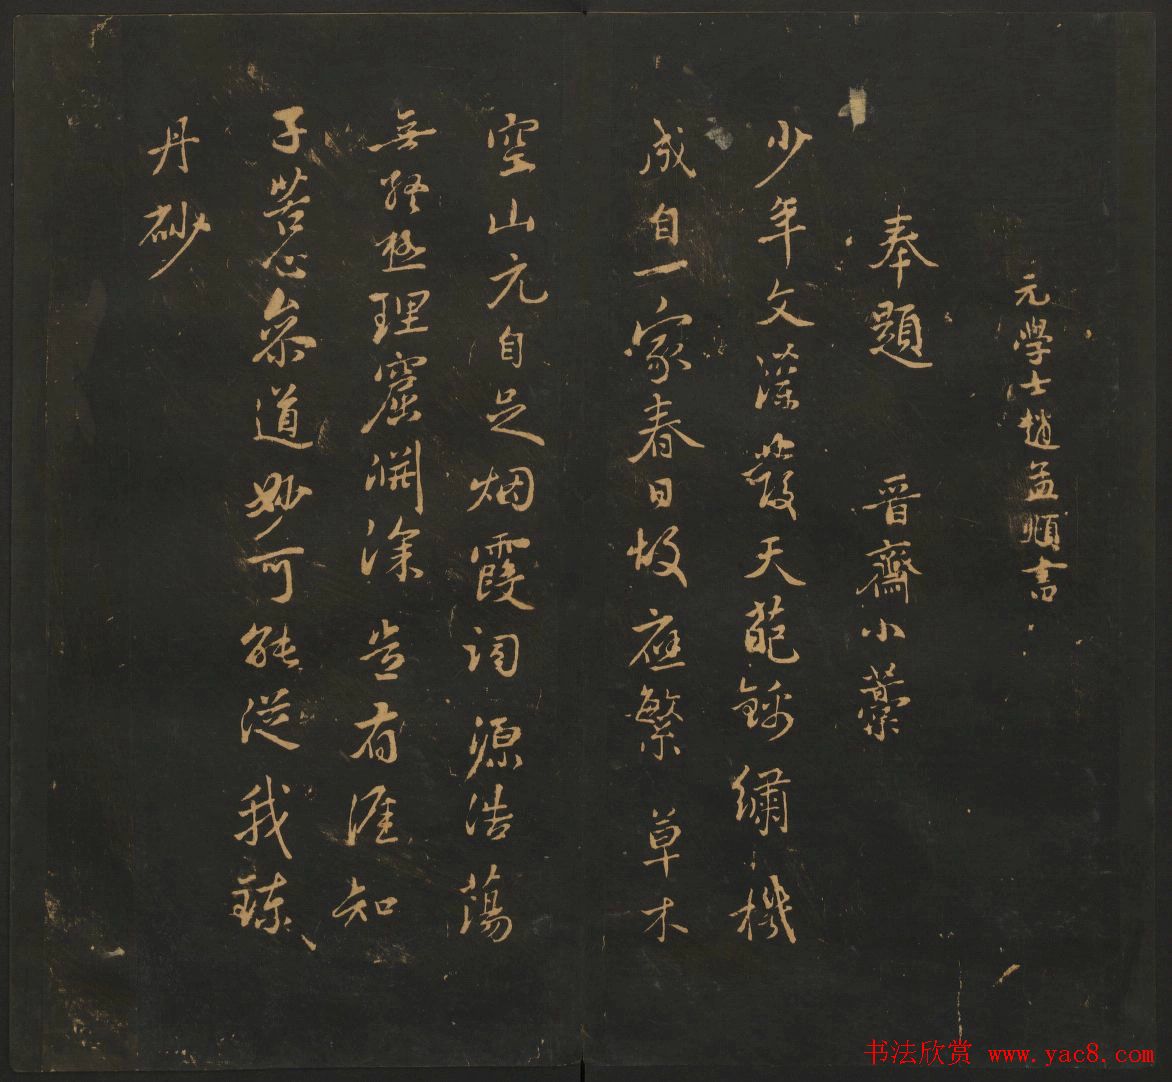 元學士趙孟頫書
奉題 晋齋小藁
少年文藻發天葩錦繡機
成自一家春日故應繁草木
空山元自足烟霞詞源浩蕩
無終極理窟淵深豈有涯知
子苦心參道妙可能從我鍊
丹砂
书法欣赏 www.yac8.com